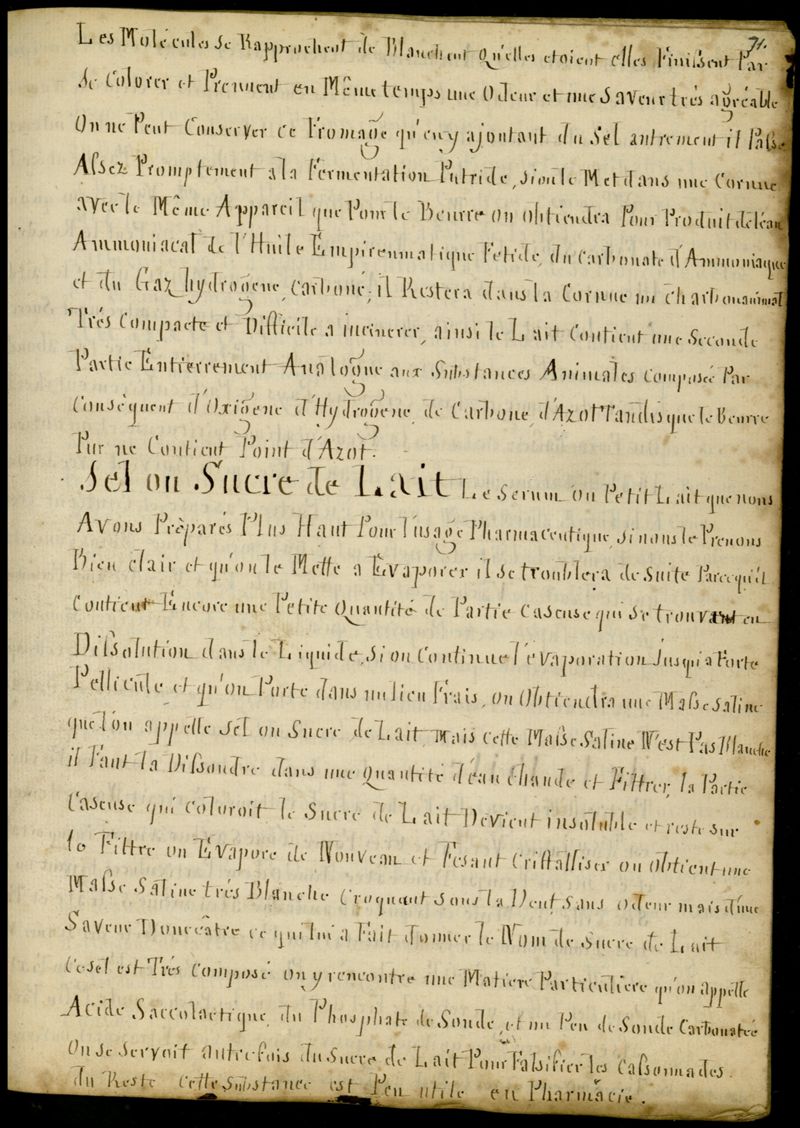 71.
Les Molécules se Rapprochent de Blanchent qu'elles etoient elles Finissent Par
se Colorer et Prennent en Même temps une Odeur et une Saveur très agréable
On ne Peut Conserver ce Fromage qu'en y ajoutant du Sel autrement il Passe
Assez Promptement a la Fermentation Putride, si on le Met dans une Cornue
avec le Même Appareil que Pour le Beurre on obtiendra Pour Produit de l'eau
Ammoniacal de l'Huile Empireumatique Fetide, du Carbonate d'Ammoniaque
et du Gaz hydrogene Carboné; il Restera dans la Cornue un charbon animal
Très Compacte et Difficile a incinerer, ainsi le Lait Contient une Seconde
Partie Entierrement Analogue aux Substances Animales Composé Par
Conséquent d'Oxigene d'Hydrogene, de Carbone, d'Azot Tandis que le Beurre
Pur ne Contient Point d'Azot.
Sel ou Sucre de Lait Le Serum ou Petit Lait que nous
Avons Préparés Plus Haut Pour l'usage Pharmaceutique, si nous le Prenons
Bien clair et qu'on le Mette a Evaporer il se troublera de suite Parcequ'il
Contient Encore une Petite Quantité de Partie Caseuse qui se trouvant en
Dissolution dans le Liquide, Si on Continue l'evaporation Jusqu'a Forte
Pellicule et qu'on Porte dans un lieu Frais, on Obtiendra une Masse Saline
que l'on appelle Sel ou Sucre de Lait, mais cette Masse Saline N'est Pas Blanche
il Faut la Dissoudre dans une Quantité d'eau chaude et Filtrer, la Partie
Caseuse qui Coloroit le Sucre de Lait Devient insoluble et reste sur
le Filtre on Evapore de Nouveau et Fesant Cristalliser on obtient une
Masse Saline très Blanche Croquant sous la Dent sans odeur mais d'une
Saveur Douceâtre ce qui lui a Fait donner le Nom de Sucre de Lait
Ce sel est Très Composé on y rencontre une Matiere Particuliere qu'on appelle
Acide Saccolactique, du Phosphate de Soude, et un Peu de Soude Carbonatée
On se servoit autrefois du Sucre de Lait Pour Falsifier les Cassonnades.
du Reste Cette Substance est Peu utile en Pharmacie.